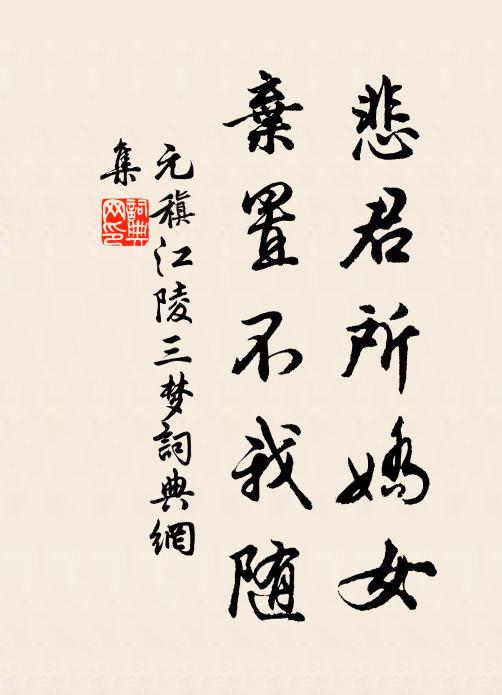 悲君所娇女
棄置不我随
元稹江陵三梦詞典網
集
詞典
网印